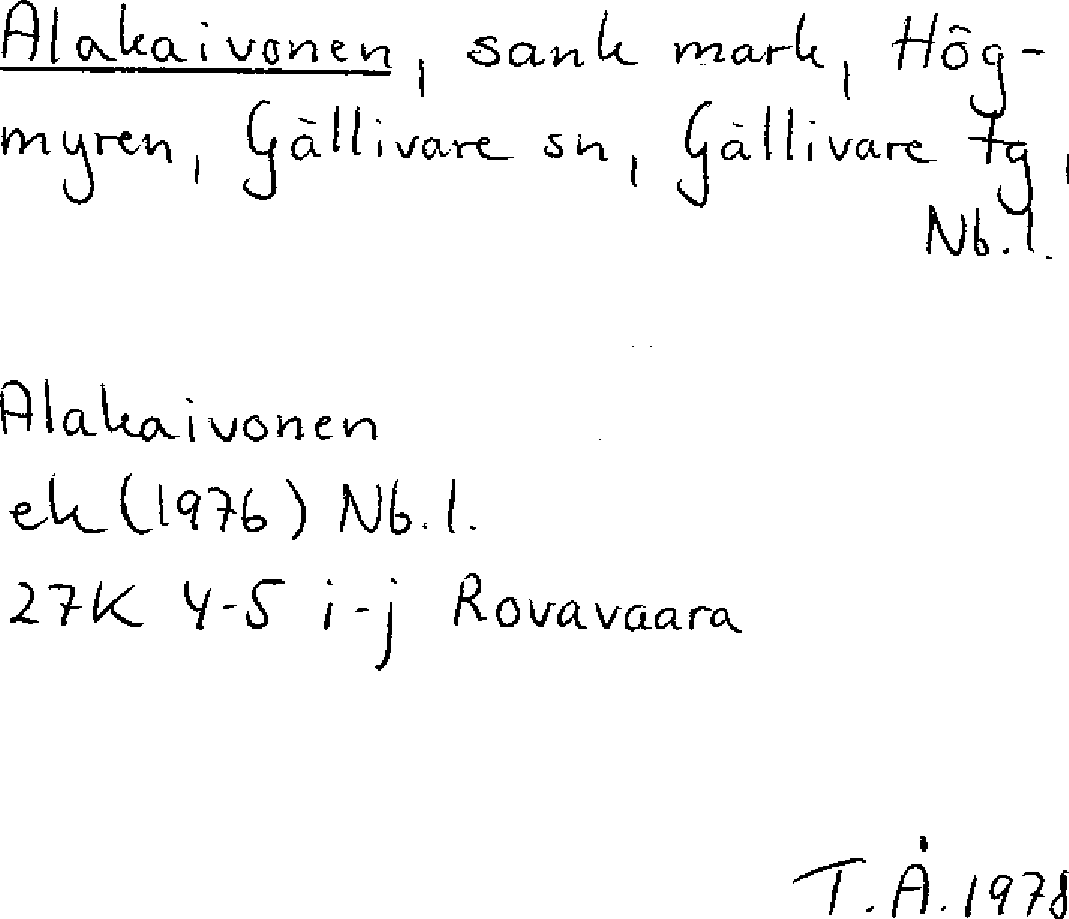 Alakaivonen, sank mark, Hög-
myren, Gällivare sn, Gällivare tg,
Nb.l.
Alakaivonen
ek (1976) Nb.l.
27K 4-5 i-j Rovavaara
T.Å.1978